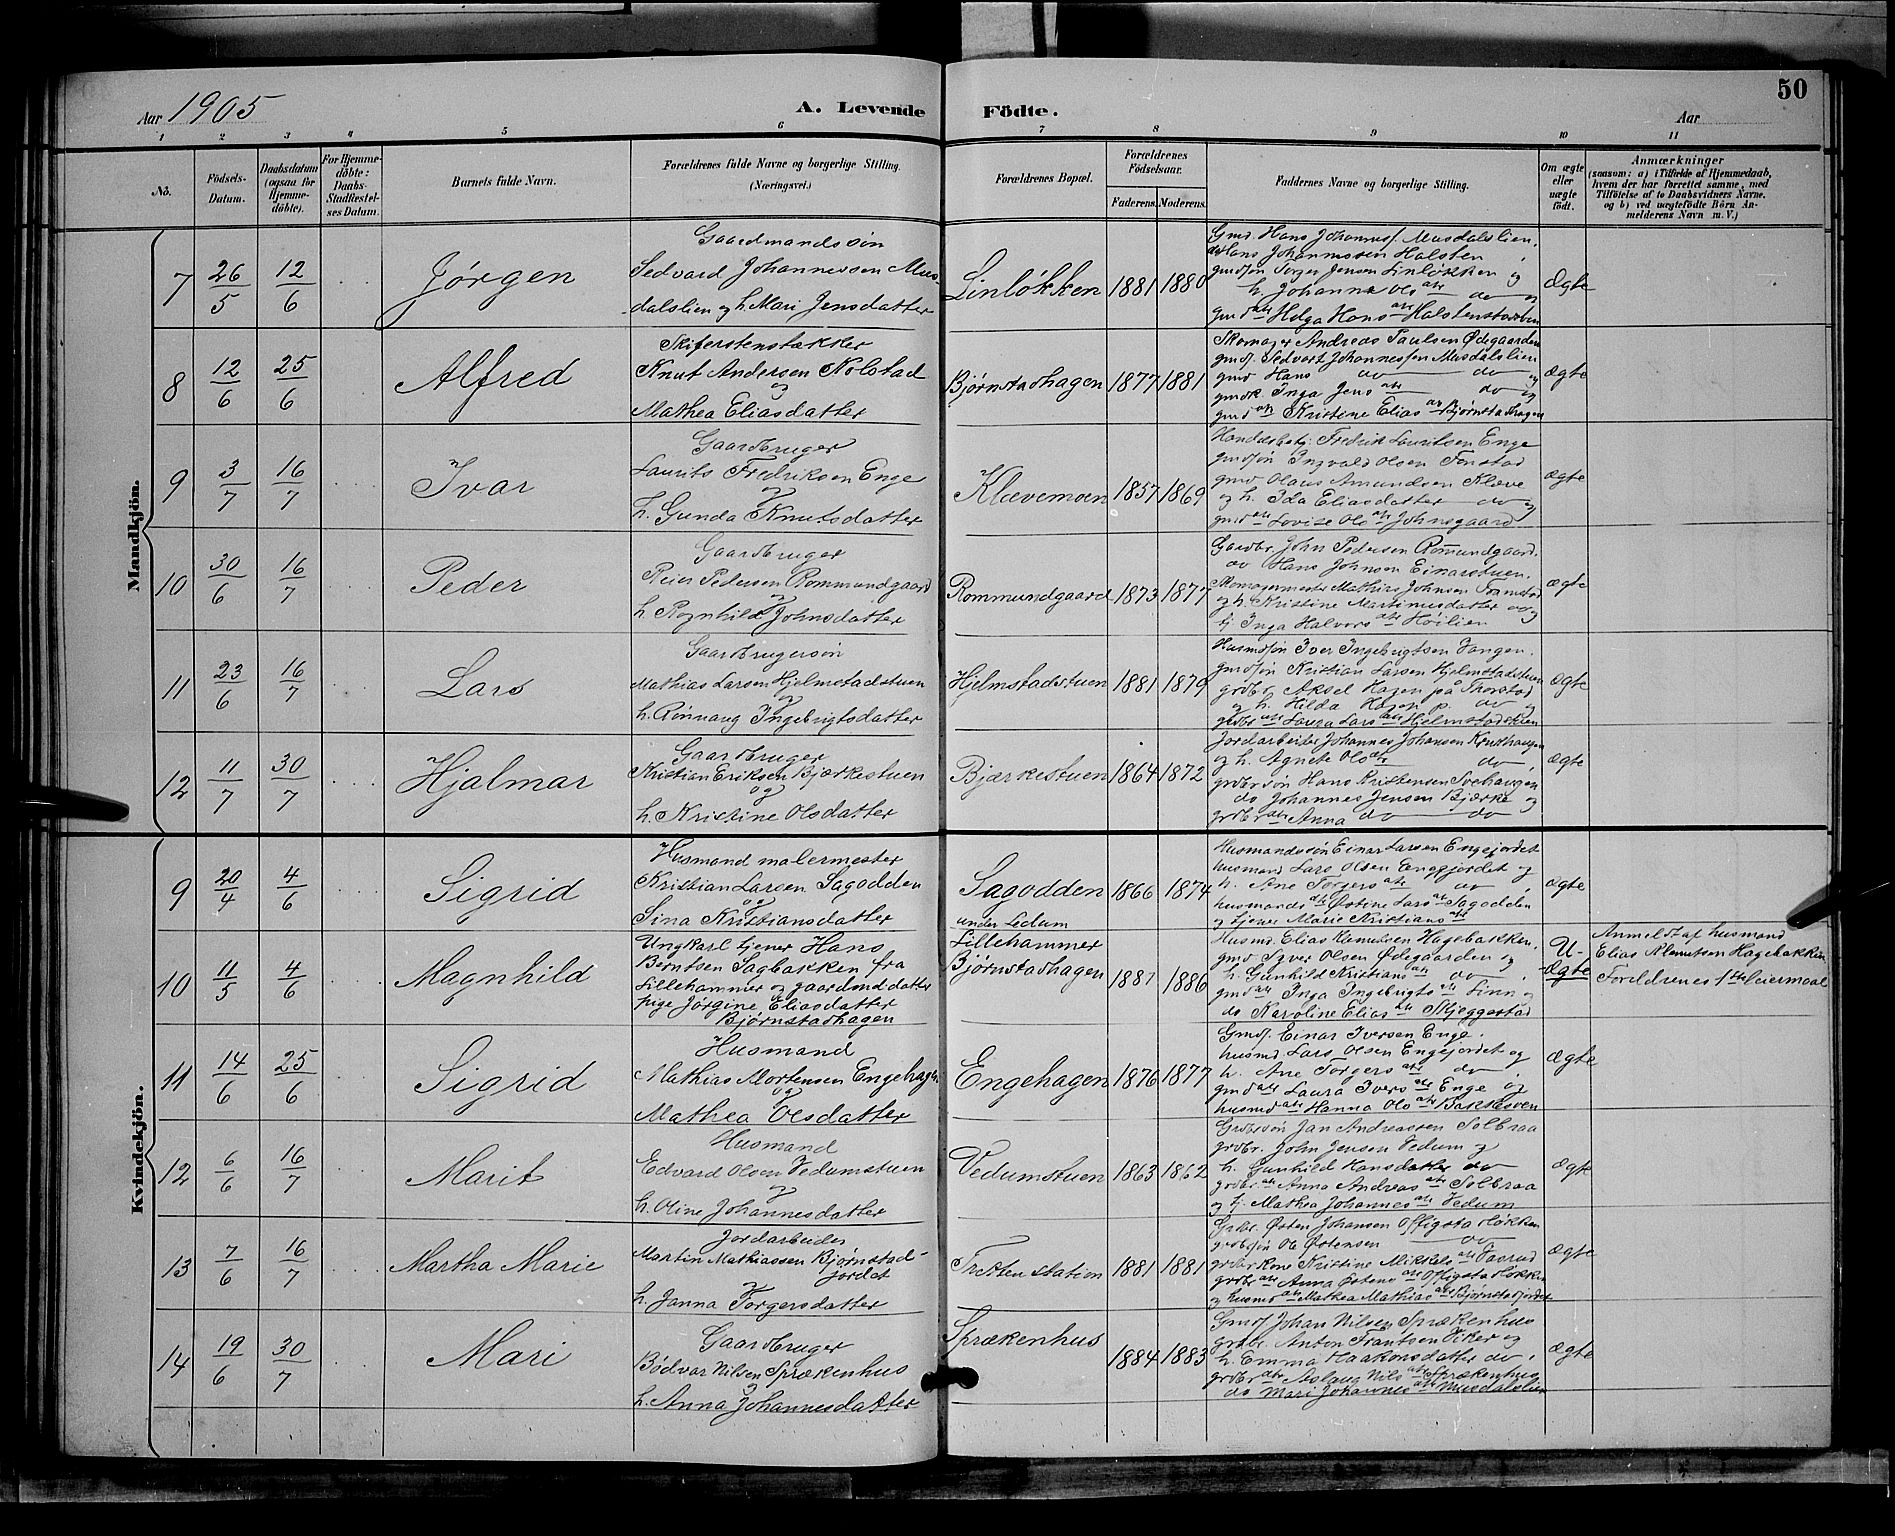 50
Aar 1905
A. Levende Födte.
Aar
1 2 3 4 5 6 7 8 9 10 11
No.
Födsels-Datum.
Daabsdatum (ogsaa for Hjemme-döbte).
For Hjemme-döbte: Daabs-Stadfæstel-ses Datum.
Barnets fulde Navn.
Forældrenes fulde Navne og borgerlige Stilling.
(Næringsvei.)
Forældrenes Bopæl.
Forældrenes Födselsaar.
Faderens. Moderens.
Faddernes Navne og borgerlige Stilling.
Om ægte eller uægte födt.
Anmærkninger
(saasom: a) i Tilfælde af Hjemmedaab,
hvem der har forrettet samme, med
Tilföielse af to Daabsvidners Navne.
og b) ved uægtefödte Börn An-
melderens Navn m. V.)
Mandkjön.
7 26/5 12/6 Jørgen
Gaardmandssøn
Sedvard Johannessen Mus-
dalslien og h. Mari Jensdatter
Linløkken 1881 1880
Gmd. Hans Johanness. Musdalslien,
Hans Johannessen Halsten
gmdsøn Torger Jensen Linløkken og
h. Johanne Ols dtr do og
gmd dtr Helga Hans dtr
Ægte
8 12/6 25/6 Alfred
Skiferstenstækker
Knut Andersen Kolstad
og
Mathea Eliasdatter
Bjørnstadhagen 1877 1881
Skomager Andreas Paulsen Ødegaarden
gmds. Sedvart Johannessen Musdalslien
gmd Hans do do og
gmdk. Inga Jens dtr do og
gmd dtr Kristine Elias dtr Bjørnstadhagen
Ægte
9 3/7 16/7 Ivar
Gaardbruger
Laurits Fredriksen Enge
og
h. Gunda Knutsdatter
Klævemoen 1857 1869
Handelsbetj. Fredrik Lauritsen Enge
gmdsøn Ingvald Olsen Tonstad
gmd Olaus Amundsen Klæve
og h. Ida Eliasdatter do og
gmd dtr Lovise Ols dtr Johnsgaard
Ægte
10 30/6 16/7 Peder
Gaardbruger
Reier Pedersen Rommundgaard
og
h. Rognhild Johnsdatter
Rommundgaard 1873 1877
Gardbr. John Pedersen Rommundgaard.
do Hans Johnsen Einarstuen.
Skomagermester Mathias Johnsen
og h. Kristine Martinusdatter do og
tj. Inga Halvors dtr Høilien
Ægte
11 23/6 16/7 Lars
Gaardbrugersøn
Mathias Larsen Hjelmstadstuen
og
h. Rønnaug Ingebrigtsdatter
Hjelmstadstuen 1881 1879
Husmdsøn Iver Ingebrigtsen Vangen.
gmdsøn Kristian Larsen Hjelmstadstuen
grdbr Aksel Hagen på Thorstad
og h. Hilda Hagen p. do og
grdbr dtr Laura Lars dtr Hjelmstadstuen
Ægte
12 11/7 30/7 Hjalmar
Gaardbruger
Kristian Eriksen Bjærkestuen
og
h. Kristine Olsdatter
Bjærkestuen 1864 1872
Jordarbeider Johannes Johansen
og h. Agnete Ols dtr do,
grdbrsøn Hans Kristensen
do Johannes Jensen Bjærke og
grdbr dtr Anna do do
Ægte
Kvindekjön.
9 20/4 4/6 Sigrid
Husmand malermester
Kristian Larsen Sagodden
og
Sina Kristiansdatter
Sagodden
under Ledum 1866 1874
Husmandssøn Einar Larsen Engejordet
husmand Lars Olsen Engejordet og
h. Ane Torgers dtr do,
husmands dtr Østine Lars dtr Sagodden
og tjener Marie Kristians dtr
Ægte
10 11/5 4/6 Magnhild
Ungkarl tjener Hans
Berntsen Sagbakken fra
Lillehammer og gaardmd.datter
pige Jørgine Eliasdatter
Bjørnstadhagen
Lillehammer
Bjørnstadhagen 1881 1886
Husmd. Elias Klemetsen Hagebakken,
gmd Syver Olsen Ødegaarden og
h. Gunhild Kristians dtr do,
gmd dtr Inga Ingebrigts dtr Linn og
do Karoline Elias dtr Skjeggestad
U-
ægte
Anmeldt af husmand
Elias Klemetsen Hagebakken
Foreldrenes 1ste leiermaal
11 14/6 25/6 Sigrid
Husmand
Mathias Mortensen Engehagen
og
Mathea Olsdatter
Engehagen 1876 1877
Gmds. Einar Iversen Enge
husmd. Lars Olsen Engejordet og
h. Ane Torgers dtr do,
gmd dtr Laura Ivers dtr Enge og
husmd dtr Hanna Ols dtr Bakkesven
Ægte
12 6/6 16/7 Marit
Husmand
Edvard Olsen Vedumstuen
og
h. Oline Johannesdatter
Vedumstuen 1863 1862
Grdbrsøn Jan Andreassen Solbraa
grdbr. John Jensen Vedum og
h. Gunhild Hansdatter do
grdbr dtr Anna Andreas dtr Solbraa
og tj. Mathea Johannes dtr Vedum
Ægte
13 7/6 16/7 Martha Marie
Jordarbeider
Martin Mathiassen Bjørnstad-
jordet
h. Janna Torgersdatter
Tretten station 1881 1881
Grdbr. Østen Johansen Offigstadløkken
grdbrsøn Ole Østensen do
grdbrkone Kristine Mikkels dtr
grdbr dtr Anna Østens dtr Offigstadløkken
og husmd dtr Mathea Mathias dtr Bjørnstadjordet
Ægte
14 19/6 30/7 Mari
Gaardbruger
Bødvar Nilsen Sprækenhus
og
h. Anna Johannesdatter
Sprækenhus 1884 1883
Gmds. Johan Nilsen Sprækenhus
grdbr. Anton Frantsen Viker og
h. Emma Haakonsdatter do,
grdbr dtr Aslaug Nils dtr Sprækenhus
do Mari Johannes dtr Musdalslien
Ægte